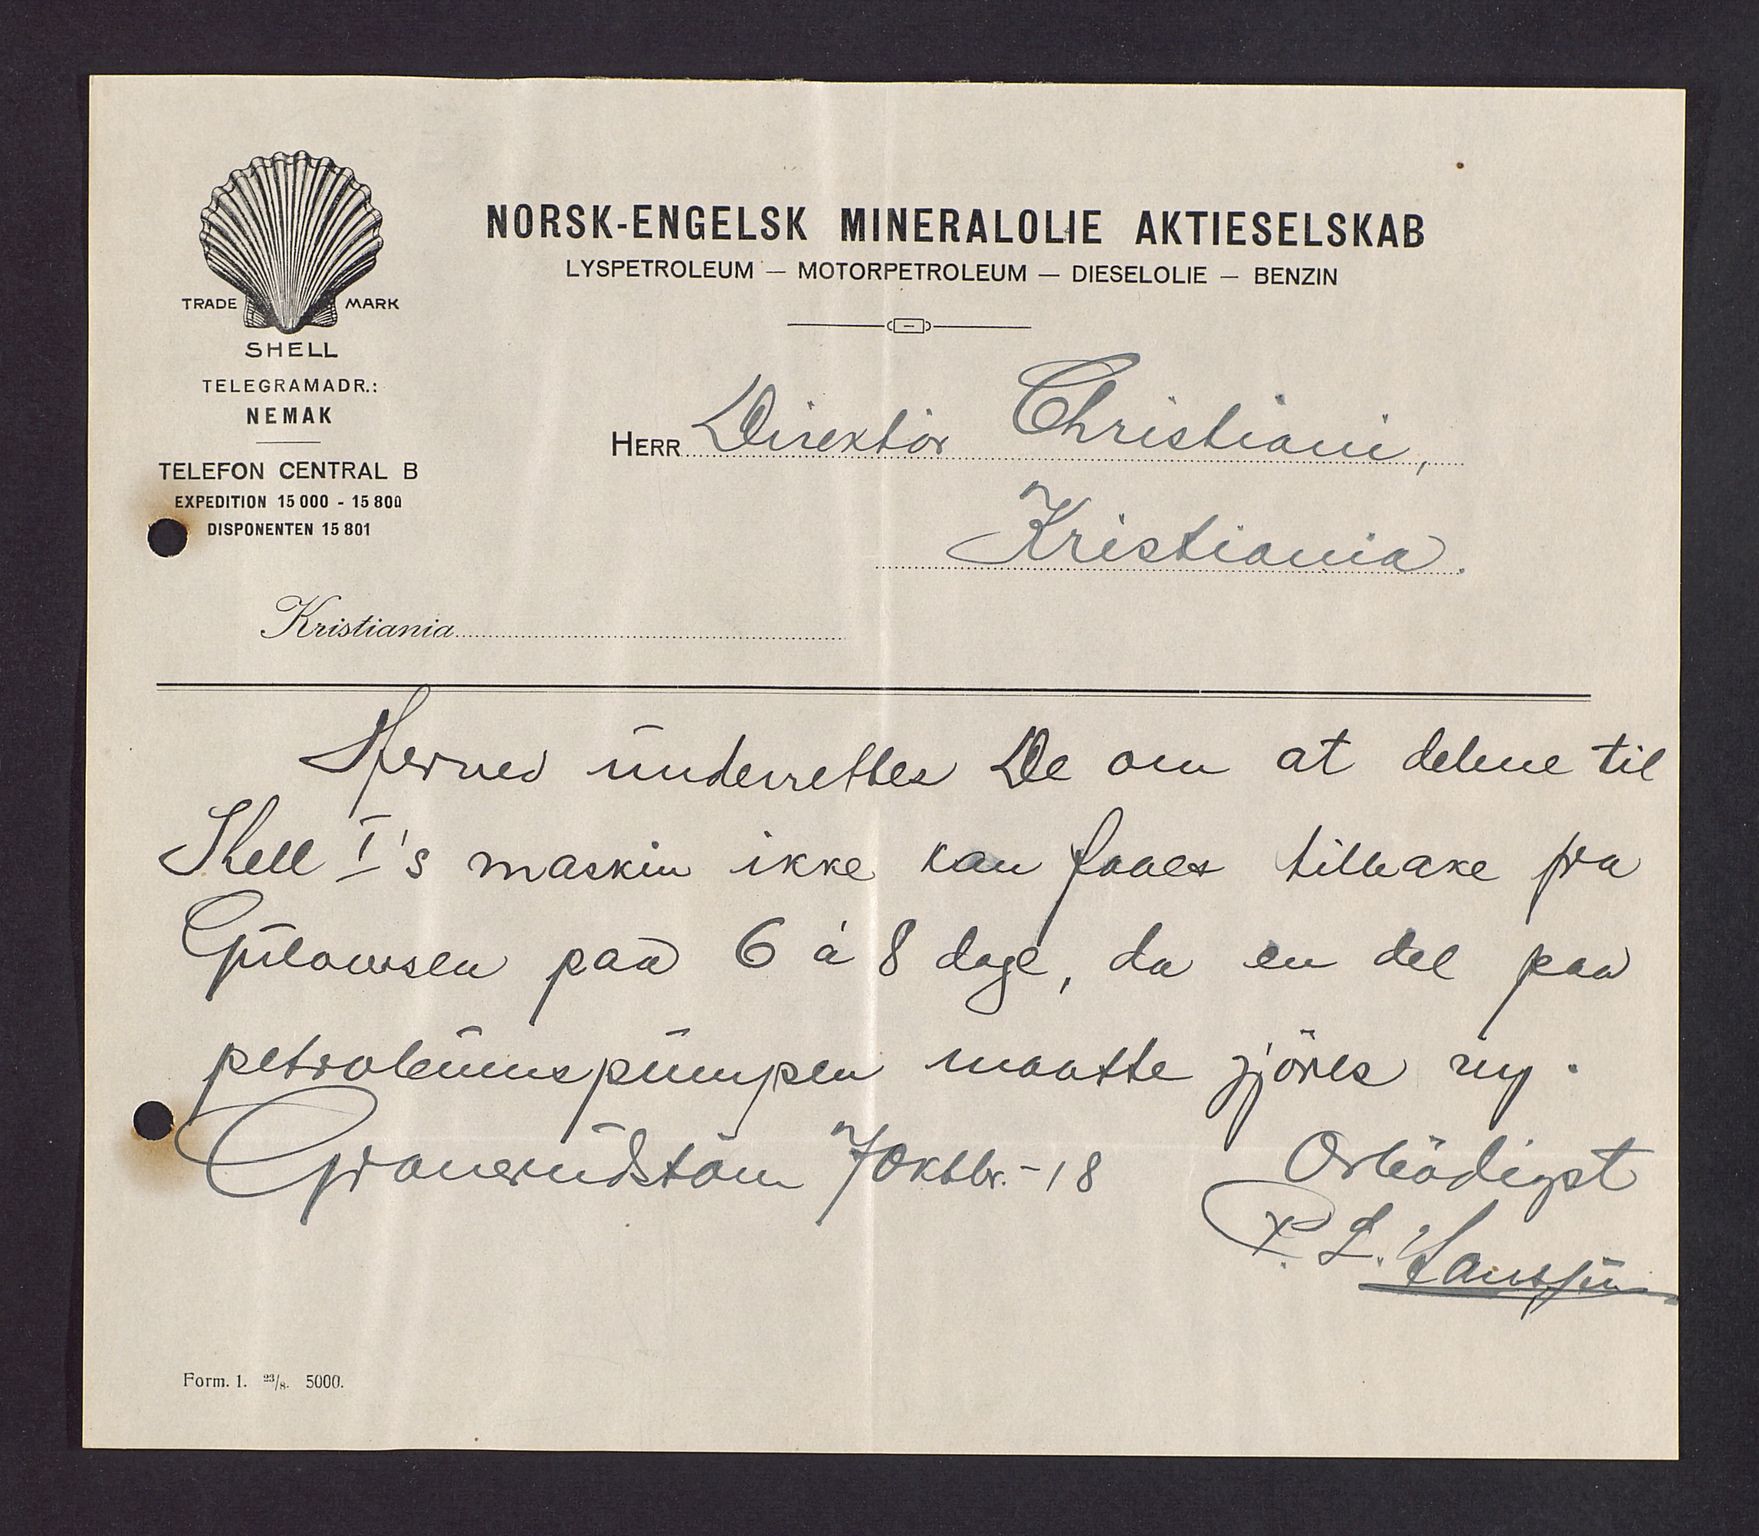 NORSK-ENGELSK MINERALOLIE AKTIESELSKAB
LYSPETROLEUM — MOTORPETROLEUM — DIESELOLIE — BENZIN
TRADE MARK
SHELL
TELEGRAMADR.:
NEMAK
TELEFON CENTRAL B
EXPEDITION 15 000 - 15 800
DISPONENTEN 15 801
HERR Direktör Christiani,
Kristiania.
Kristiania
Herved underrettes De om at delene til
Shell I's maskin ikke kan faaes tilbake fra
Gulowsen paa 6 á 8 dage, da en del paa
petroleumspumpen maatte gjöres ny.
7 Oktbr. - 18 Ærbödigst
P. L.
Form. 1. 23/8. 5000.